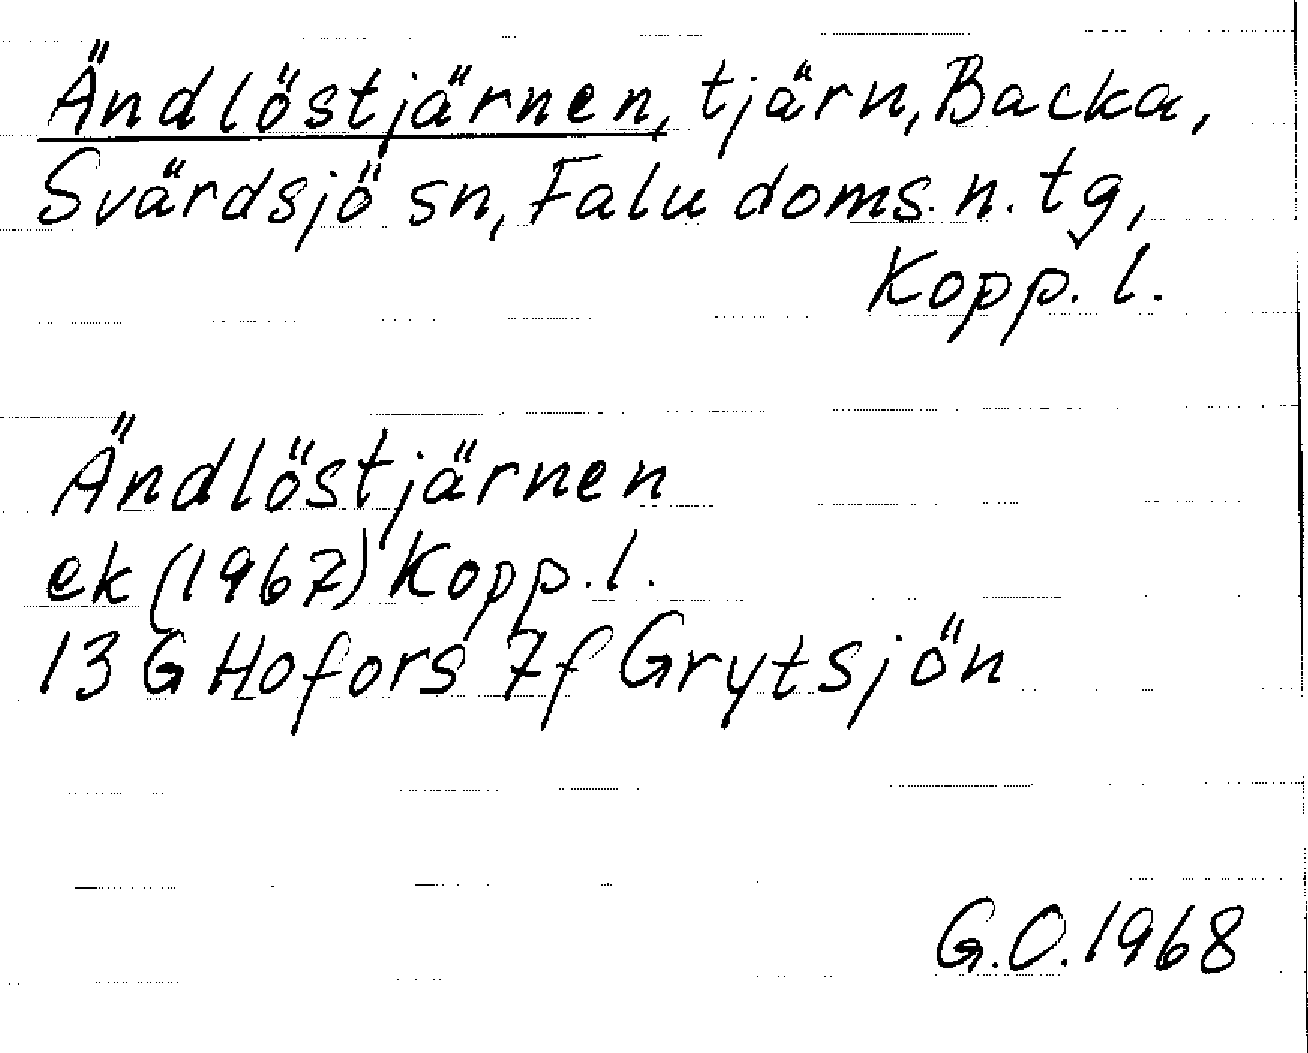 Ändlöstjärnen, tjärn, Backa,
Svärdsjö sn, Falu doms. n. tg,
Kopp. l.
Ändlöstjärnen
ek (1967) Kopp. l.
13 G Hofors 7f Grytsjön
G.O. 1968